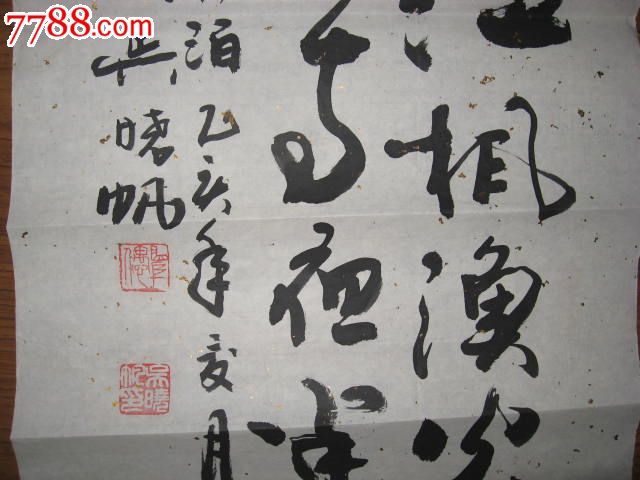 7788.com
江枫渔火
寺夜半
泊乙亥年夏月
吴晓帆
吴晓帆印